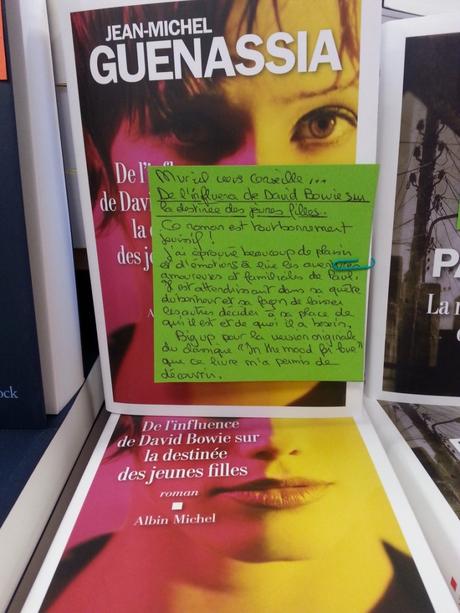 JEAN-MICHEL
GUENASSIA
De l'infl
de Davi
la d
des j
A
Muriel vous conseille...
De l'influence de David Bowie sur
la destinée des jeunes filles.
Ce roman est tout bonnement
jouissif !
J'ai éprouvé beaucoup de plaisir
et d'émotions à lire les aventures
amoureuses et familiales de Paul.
Il est attendrissant dans sa quête
du bonheur et sa façon de laisser
les autres décider à sa place de
qui il est et de quoi il a besoin.
Big up pour la version originale
du classique "In the mood for love"
que ce livre m'a permis de
découvrir.
De l'influence
de David Bowie sur
la destinée
des jeunes filles
roman
Albin Michel
PA
La
ock